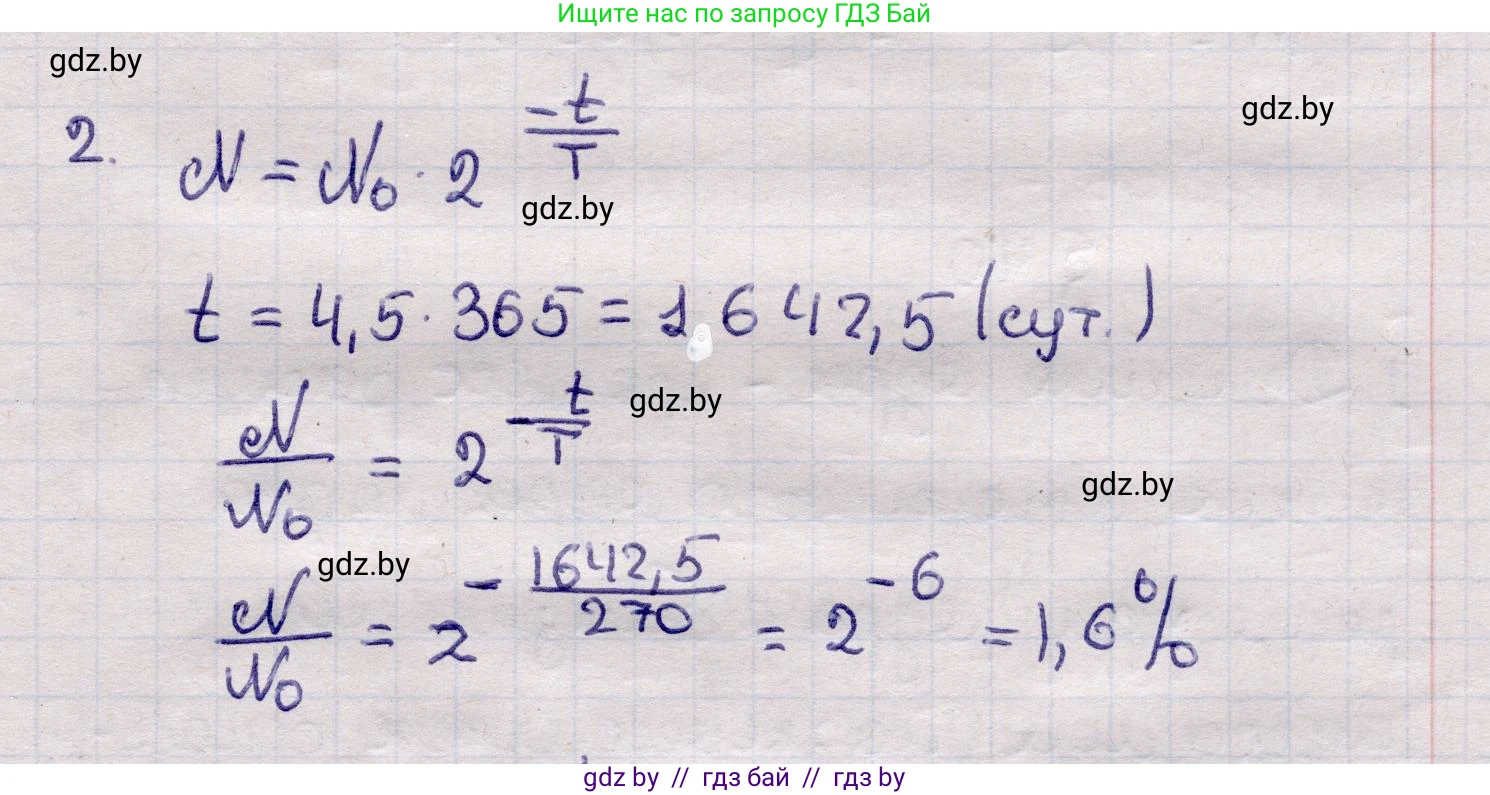 Ищите нас по запросу ГДЗ Бай
gdz.by
gdz.by
2. N = N₀ · 2^(-t/T)
gdz.by
t = 4,5 · 365 = 1 642,5 (сут.)
gdz.by
N/N₀ = 2^(-t/T)
gdz.by
gdz.by
N/N₀ = 2^(-1642,5/270) = 2^(-6) = 1,6%
gdz by // гдз бай // гдз by